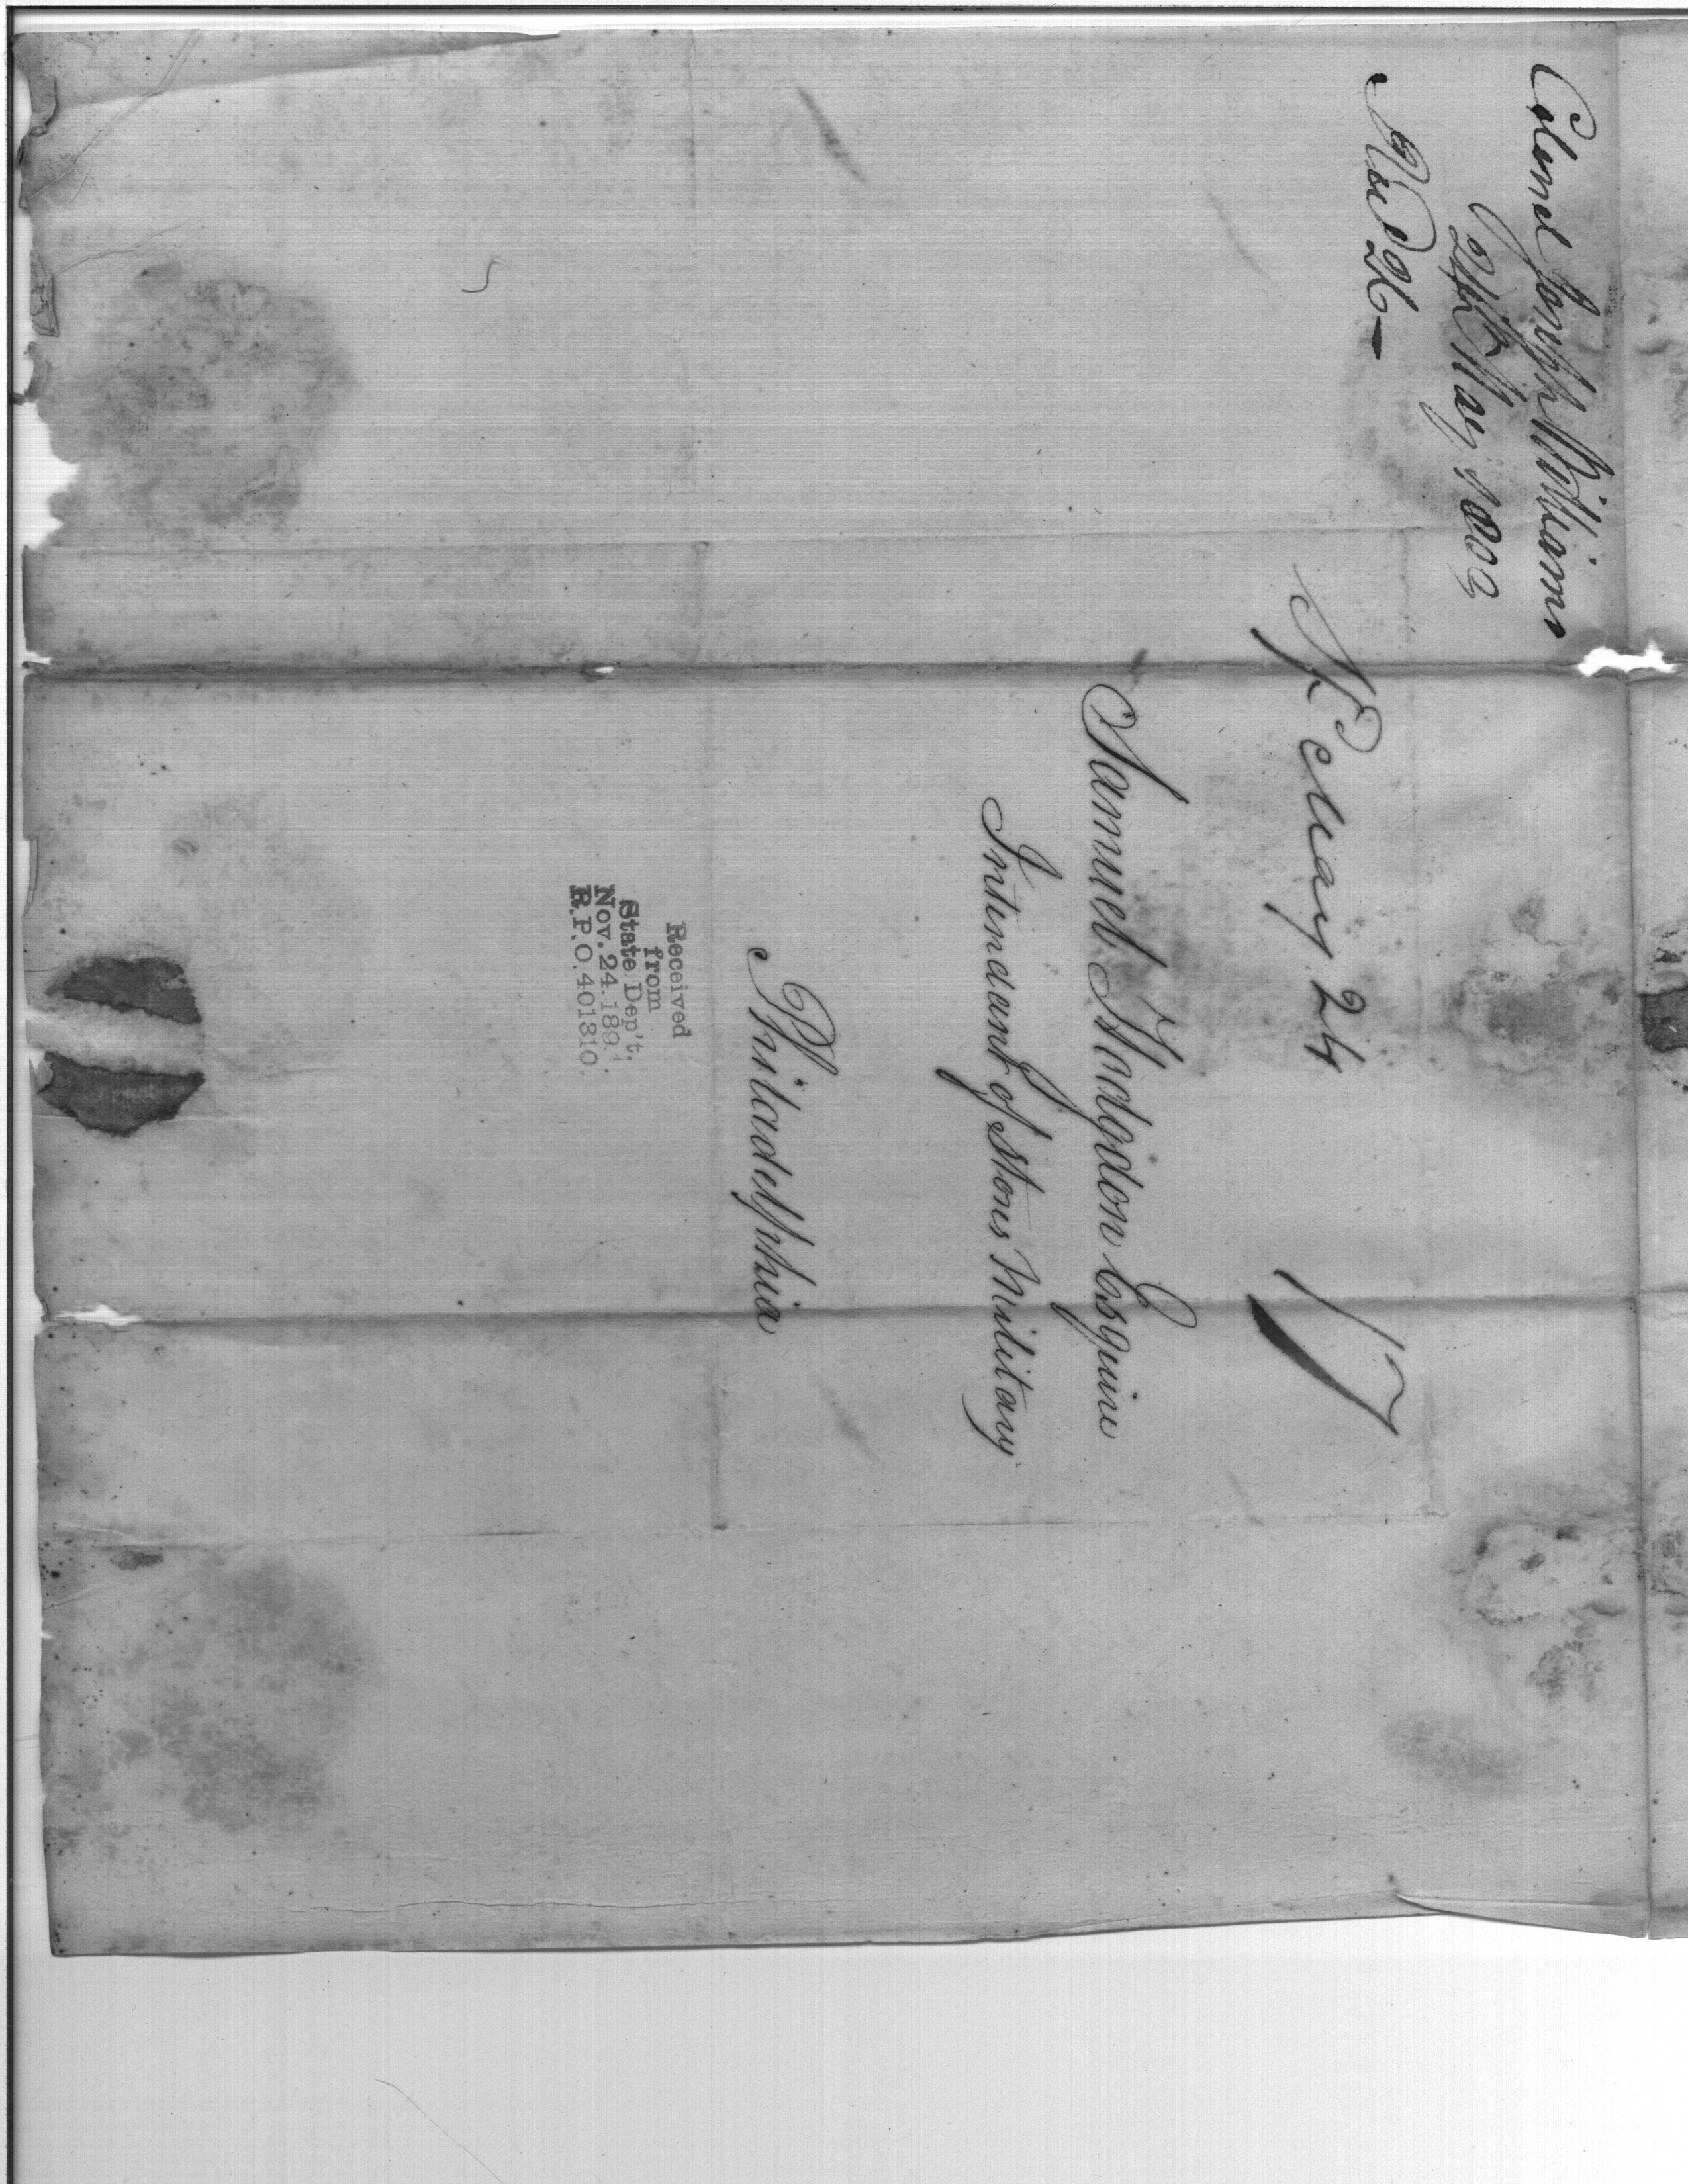 Colonel Joseph Williams
24th May 1802
Ans'd 26 —
May 24 17
Samuel Hodgdon Esquire
Intendant of Stores Military
Philadelphia
Received
from
State Dep't.
Nov. 24. 1894.
R.P.O. 401310.